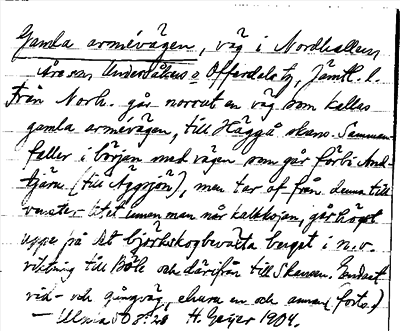 Gamla armévägen, väg i Nordhallens
Åre sn Undersåkers o Offerdals tg, Jämtl. l.
Från Norh. går norrut en väg som kallas
gamla armévägen, till Häggå skans. Samman-
faller i början med vägen som går förbi And-
tjärn (till Äggsjön), men tar af från denna till
venster litet innan man når kalkkojan, går högt
uppe på det björkskogbevuxta berget i n.v.
riktning till Böle och därifrån till Skansen. Endast
rid- och gångväg, ehuru en och annan (forts.)
– Ulma 508:20 H. Geijer 1904.